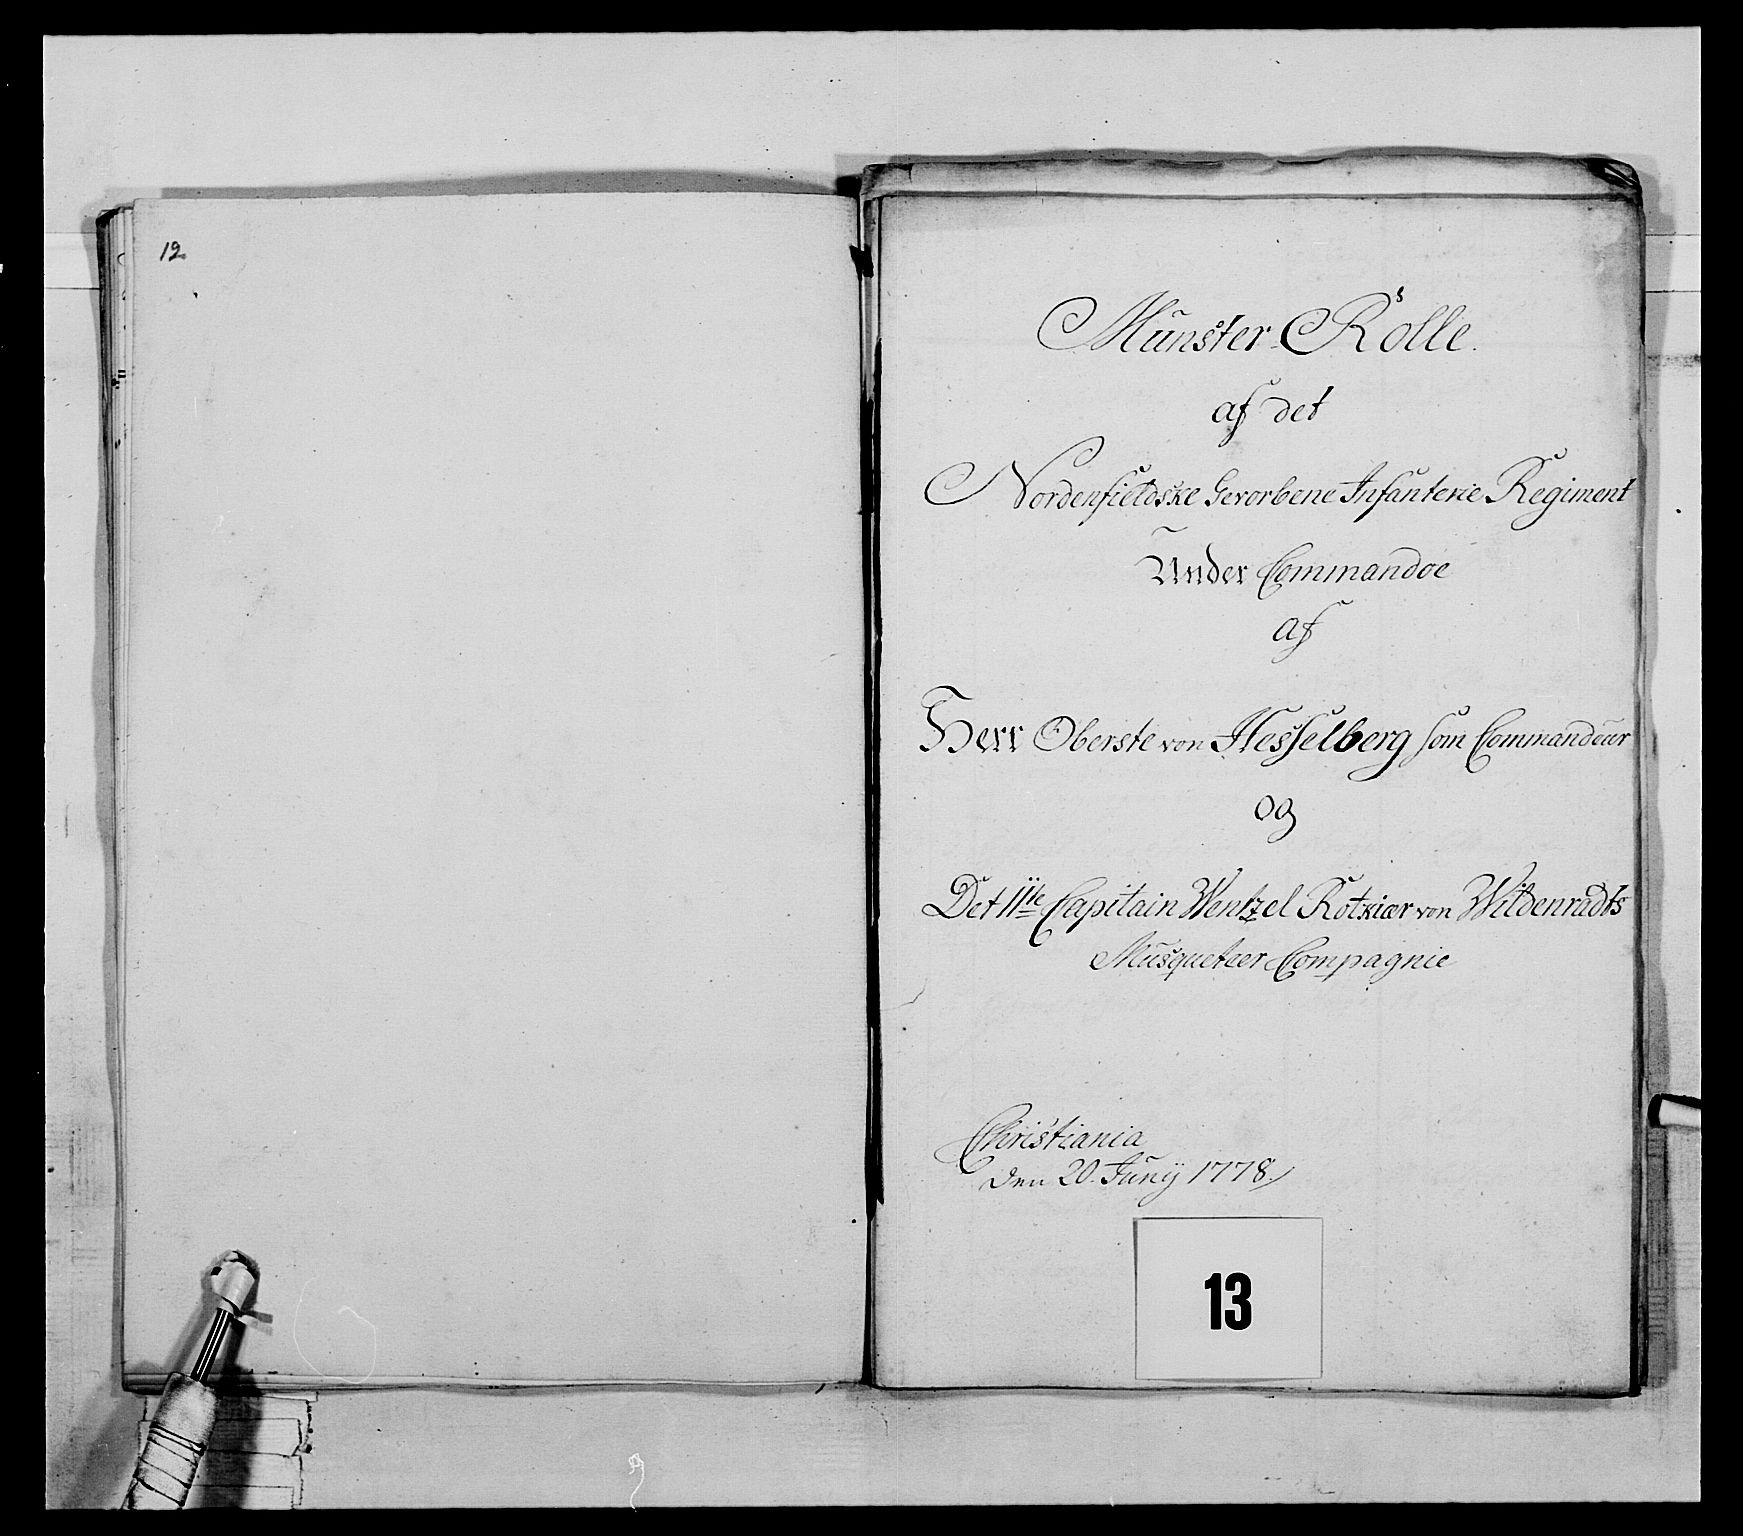 12
Munster-Rolle.
af det
Nordenfieldske Geworbene Infanterie Regiment
Under Commandoe
af
Herr Oberste von Hesselberg som Commandeur
og
Det 11te Capitain Wentzel Rotkiær von Wildenradts
Musqueteer Compagnie
Christiania
den 20. Junÿ 1778.
13